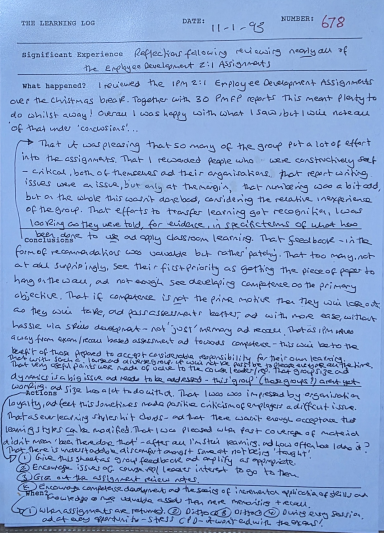 THE LEARNING LOG DATE: 11-1-93 NUMBER: 678
Significant Experience Reflections following reviewing nearly all of
the Employee Development 2:1 Assignments
What happened? I reviewed the IPM 2:1 Employee Development Assignments
over the Christmas break. Together with 30 PMFP reports This meant plenty to
do whilst away! Overall I was happy with what I saw, but I will note all
of that under 'conclusions'...
That it was pleasing that so many of the group put a lot of effort
into the assignments. That I rewarded people who were constructively self
-critical, both of themselves and their organisations. That report writing
issues were an issue, but only at the margin, that numbering was a bit odd,
but on the whole this wasn't done bad, considering the relative inexperience
of the group. That efforts to transfer learning got recognition, I was
looking as they were told, for evidence, in specific terms of what has
been done to use and apply classroom learning. That feedback - in the
Conclusions
form of recommendations was valuable but rather patchy. That too many, not
at all surprisingly, see their first priority as getting the piece of paper to
hang on the wall, and not enough see developing competence as the primary
objective. That if competence is not the prime motive then they will lose out
as they will take, and pass assessments better and with more ease, without
hassle via skills development - not 'just' memory and recall. That as IPM moves
away from exam/recall based assessment and towards competence - this will be to the
benefit of those prepared to accept considerable responsibility for their own learning.
That group size and
dynamics is a big issue and needs to be addressed - this 'group' (those groups?) aren't yet
working and size has a lot to do with it. That I was impressed by organisation
Actions
loyalty, and feel this sometimes made positive criticism of employers a difficult issue.
That as our learning styles list shows - and that there wasn't even acceptance that
learning styles can be modified. That I was pleased when fast coverage of material
did not mean 'been there done that' - after all I'm still learning, and how often have I done it?
That there is understandable discomfort amongst some at not being 'taught'.
① Give this sheet as group feedback and amplify as appropriate.
② Encourage issues of concern/ leaders interest to go to them.
③ Give out the assignment review notes.
④ Encourage competence development and the seeing of incremental application of skills and
knowledge as more valuable assets than mere memorising + recall.
When?
① When assignments are returned. ② Ditto ③ Ditto ④ During every session
and at every opportunity - stress CPD -